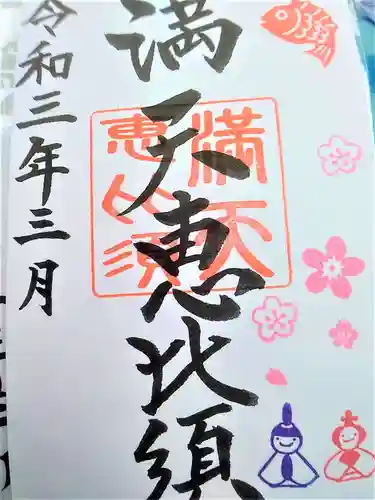 満天恵比須
満天
恵比須
令和三年三月